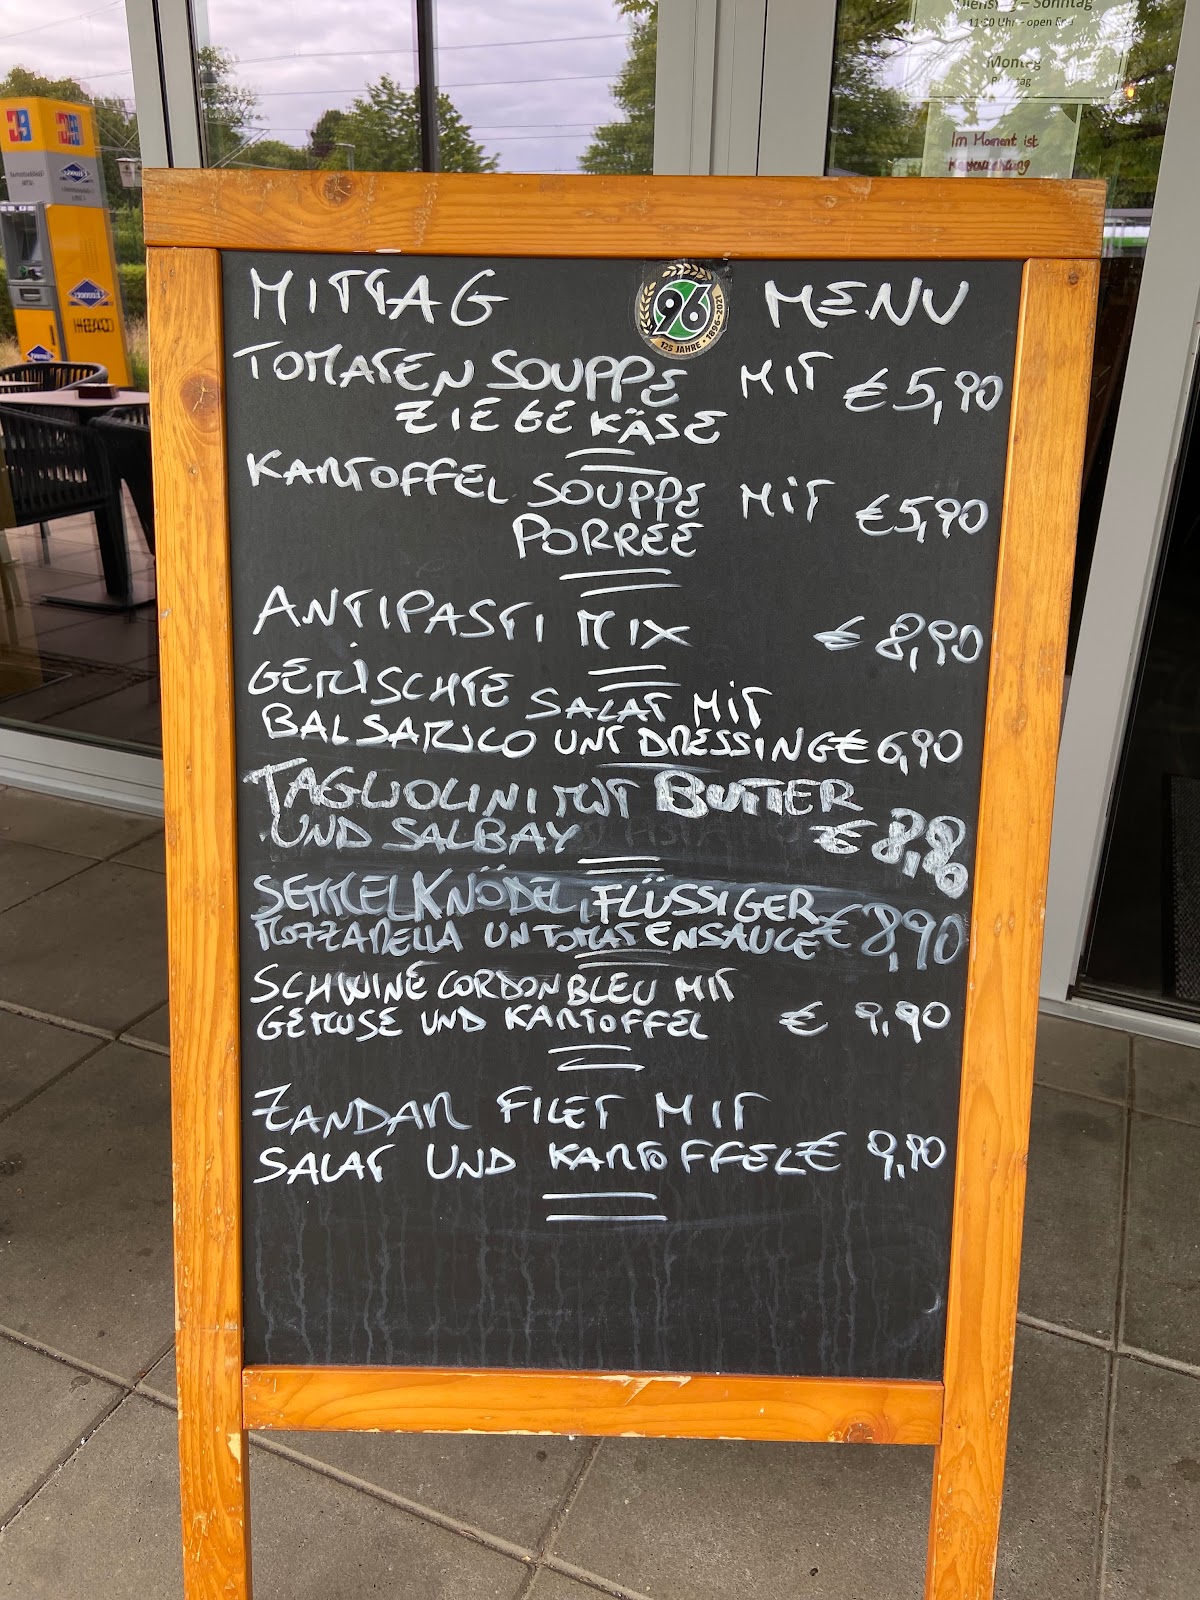 Dienstag – Sonntag
11:30 Uhr – open End
Montag
Ruhetag
Im Moment ist
MITTAG MENU
96
125 JAHRE • 1896-2021
TOMATEN SOUPPE MIT € 5,90
ZIEGE KÄSE
KARTOFFEL SOUPPE MIT € 5,90
PORREE
ANTIPASTI MIX € 8,90
GEMISCHTE SALAT MIT
BALSAMICO UNT DRESSING € 6,90
TAGLIOLINI MIT BUTTER
UND SALBAY € 8,90
SEMMELKNÖDEL, FLÜSSIGER
MOZZARELLA UN TOMATENSAUCE € 8,90
SCHWINE CORDONBLEU MIT
GEMUSE UND KARTOFFEL € 9,90
ZANDAR FILET MIT
SALAT UND KARTOFFEL € 9,90